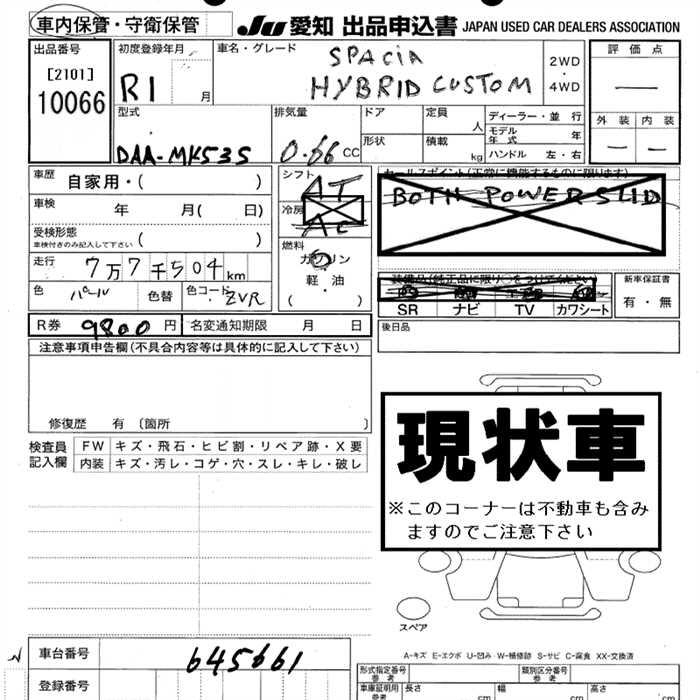 車内保管・守衛保管 JU 愛知 出品申込書 JAPAN USED CAR DEALERS ASSOCIATION
出品番号 初度登録年月 車名・グレード 評価点
[2101] SPACIA 2WD
10066 R1 月 HYBRID CUSTOM 4WD
外装 内装
型式 排気量 ドア 定員 人 ディーラー・並行
DAA-MK53S 0.66 CC 形状 積載 kg モデル年式 年
ハンドル 左・右
車歴 自家用・( ) シフト AT セールスポイント(正常に機能するものに限ります)
BOTH POWER SLID
車検 年 月( 日) 冷房 AC
受検形態
車検付きのみ記入して下さい ( ) 燃料 ガソリン
走行 7万7千504km 軽油
( )
色 パール 色替 色コード ZVR
装備品(純正品に限り○をつけてください) 新車保証書
SR ナビ TV カワシート 有・無
R券 9800円 名変通知期限 月 日 後日品
注意事項申告欄(不具合内容等は具体的に記入して下さい)
修復歴 有 〔箇所 〕
現状車
※このコーナーは不動車も含み
ますのでご注意下さい
検査員記入欄 FW キズ・飛石・ヒビ割・リペア跡・X要
内装 キズ・汚レ・コゲ・穴・スレ・キレ・破レ
スペア
A-キズ E-エクボ U-凹み W-補修跡 S-サビ C-腐食 XX-交換済
車台番号 645661
登録番号
形式指定番号 類別区分番号
車庫証明用 長さ cm 幅 cm 高さ cm